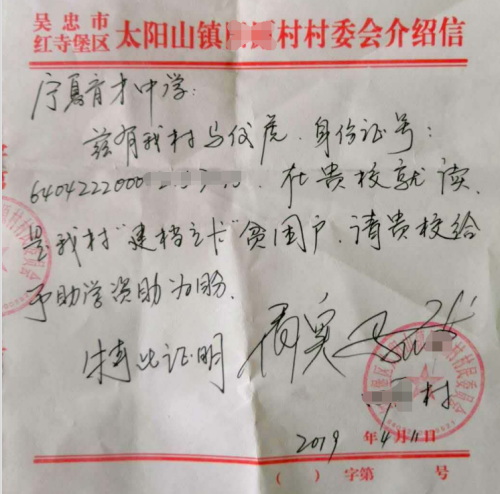 吴忠市
红寺堡区 太阳山镇 村村委会介绍信
宁夏育才中学:
兹有我村马仗虎、身份证号:
6404222000 在贵校就读
是我村"建档立卡"贫困户、请贵校给
予助学资助为盼、
特此证明 情况属实
村
2019年4月11日
( ) 字第 号